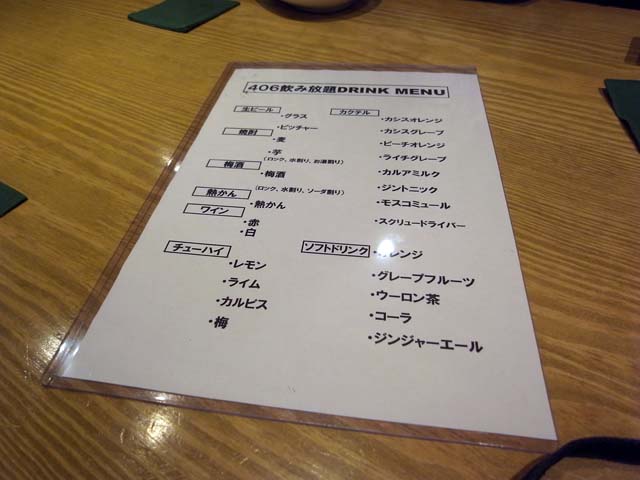 406飲み放題DRINK MENU
生ビール
・グラス
・ピッチャー
焼酎
・麦
・芋
(ロック、水割り、お湯割り)
梅酒
・梅酒
(ロック、水割り、ソーダ割り)
熱かん
・熱かん
ワイン
・赤
・白
チューハイ
・レモン
・ライム
・カルピス
・梅
カクテル
・カシスオレンジ
・カシスグレープ
・ピーチオレンジ
・ライチグレープ
・カルアミルク
・ジントニック
・モスコミュール
・スクリュードライバー
ソフトドリンク
・オレンジ
・グレープフルーツ
・ウーロン茶
・コーラ
・ジンジャーエール